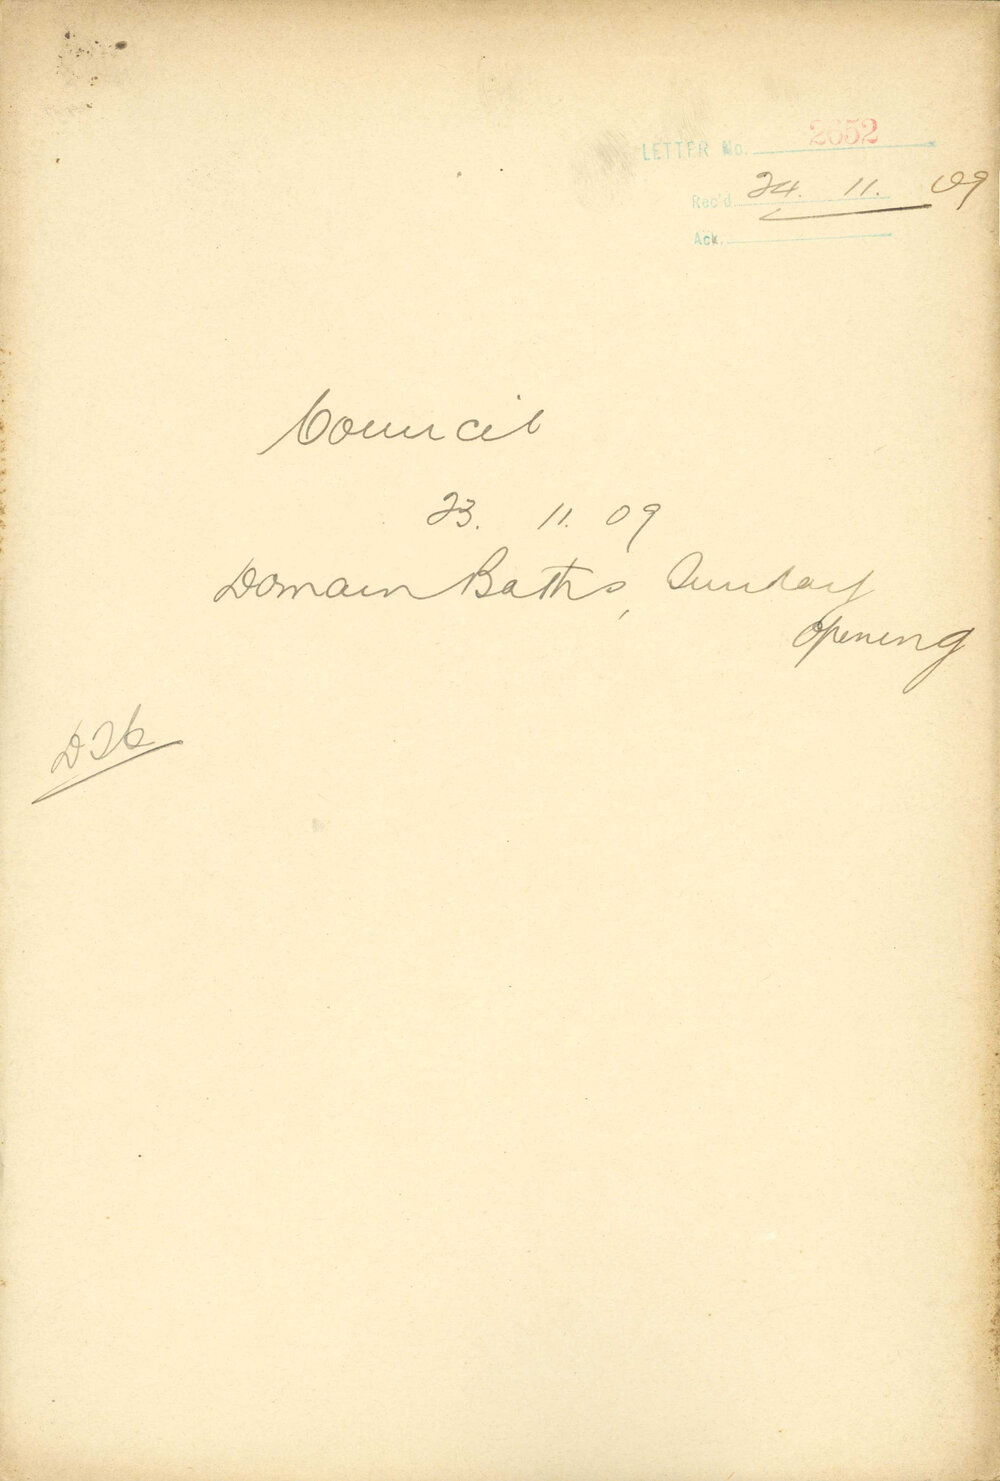 LETTER No. 2652
Rec'd 24. 11. 09
Ack.
Council
23. 11. 09
Domain Baths, Sunday
opening